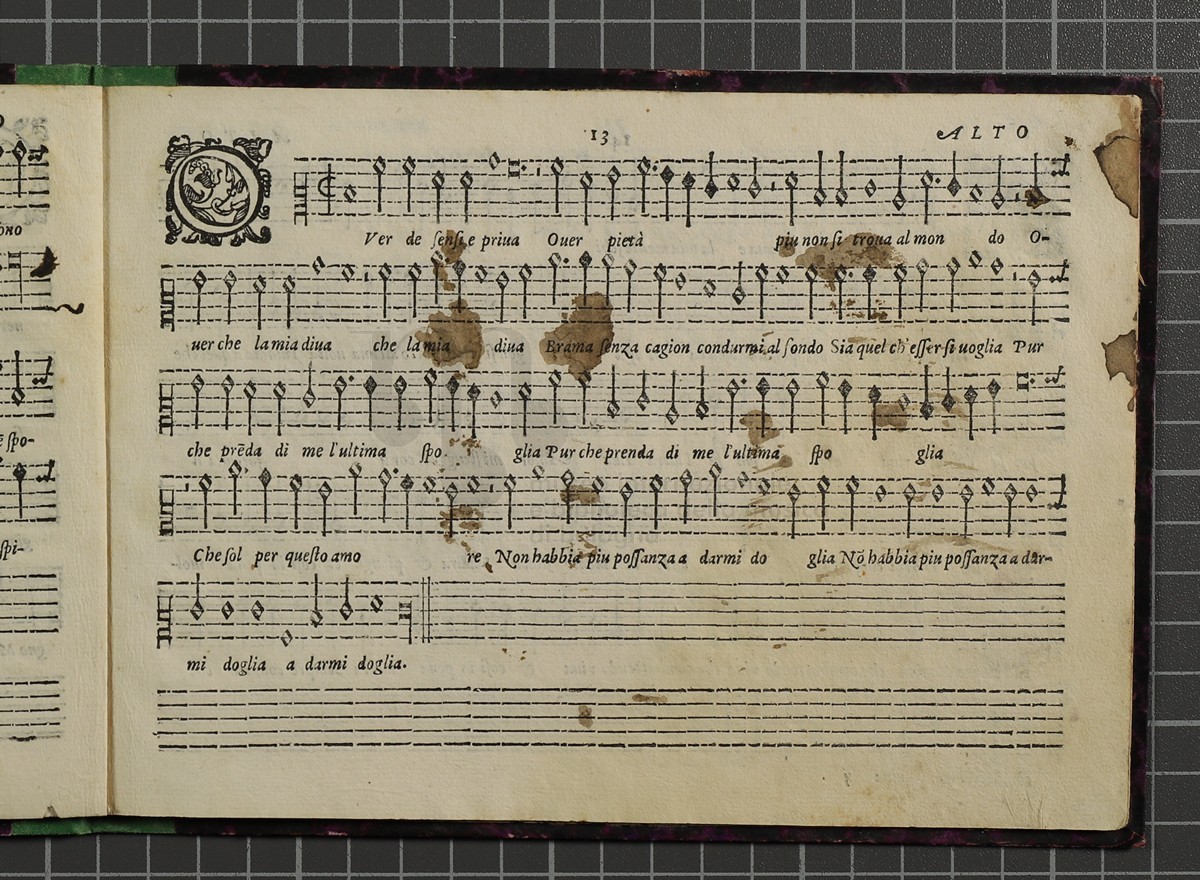 13 ALTO
OVer de sensi e priua Ouer pietà piu non si troua al mon do O-
uer che la mia diua che la mia diua Brama senza cagion condurmi al fondo Sia quel ch'esser si uoglia Pur
che prēda di me l'ultima spo glia Pur che prenda di me l'ultima spo glia
Che sol per questo amo re Non habbia piu possanza a darmi do glia Nō habbia piu possanza a dar-
mi doglia a darmi doglia.
ē spo-
spi-